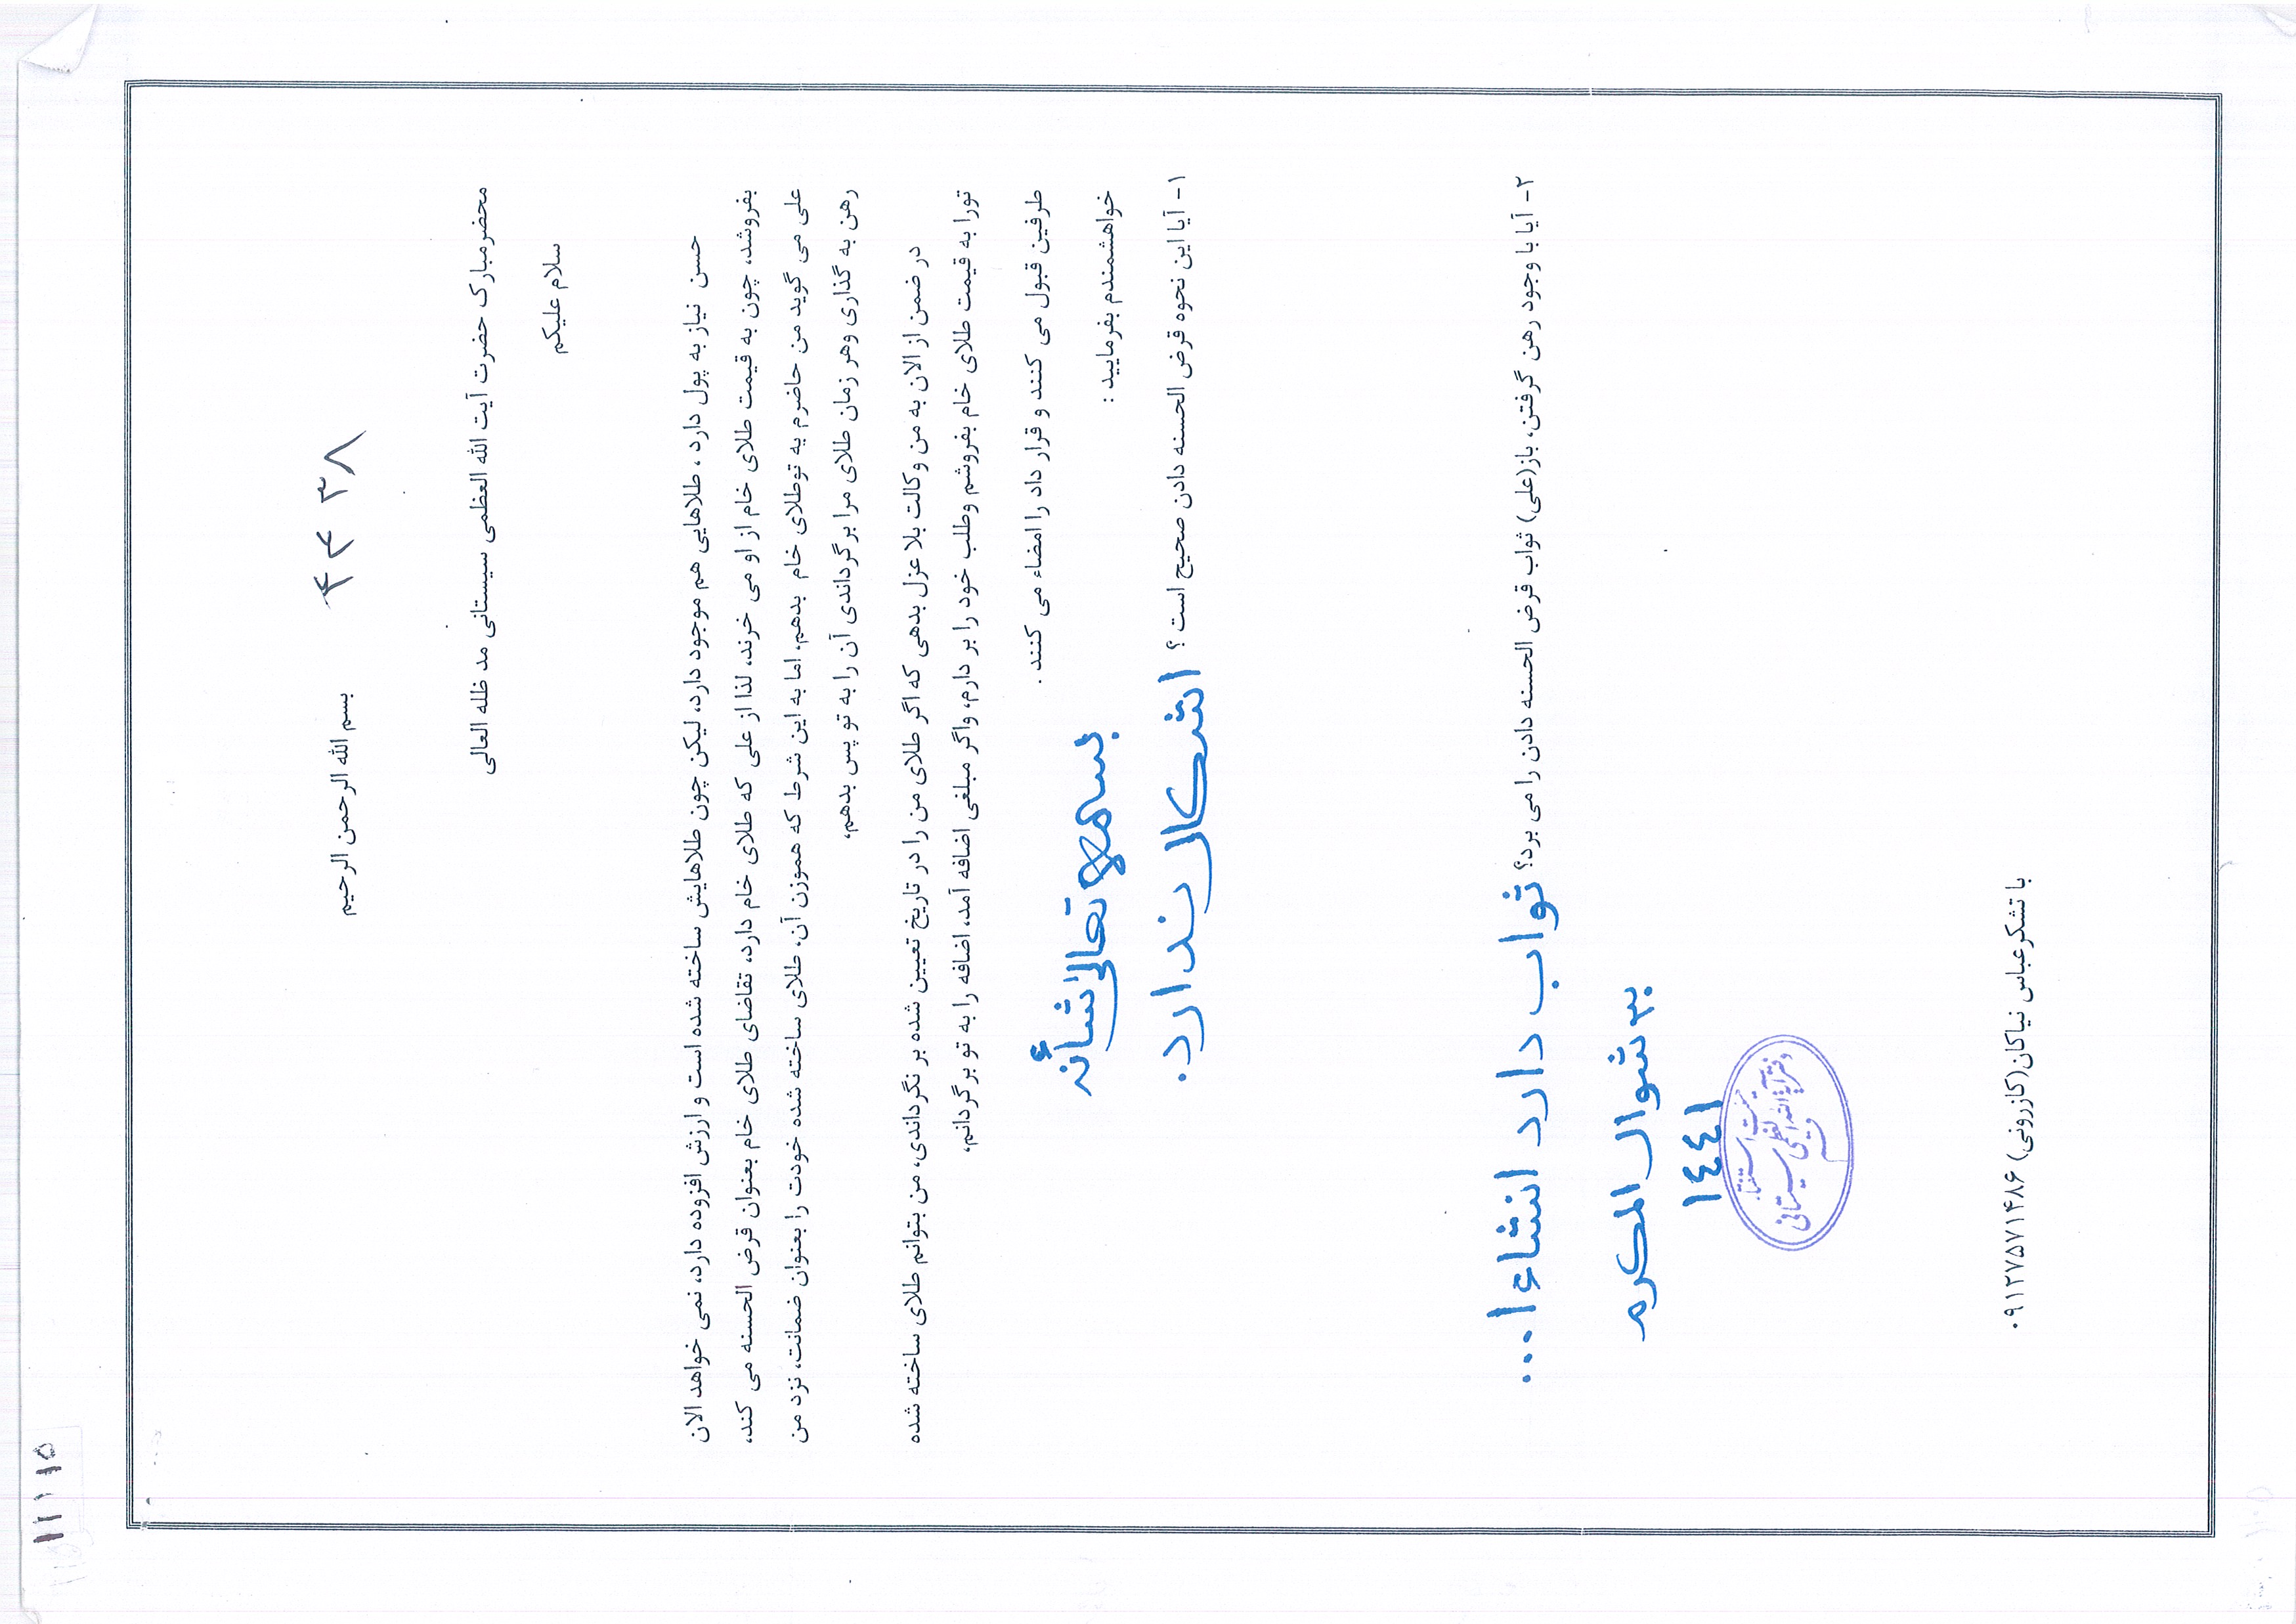 ۴۴۳۸
بسم الله الرحمن الرحیم
محضرمبارک حضرت آیت الله العظمی سیستانی مد ظله العالی
سلام علیکم
حسن نیاز به پول دارد ، طلاهایی هم موجود دارد، لیکن چون طلاهایش ساخته شده است و ارزش افزوده دارد، نمی خواهد الان
بفروشد، چون به قیمت طلای خام از او می خرند، لذا از علی که طلای خام دارد، تقاضای طلای خام بعنوان قرض الحسنه می کند،
علی می گوید من حاضرم به توطلای خام بدهم، اما به این شرط که هموزن آن، طلای ساخته شده خودت را بعنوان ضمانت، نزد من
رهن به گذاری وهر زمان طلای مرا برگرداندی آن را به تو پس بدهم،
در ضمن از الان به من وکالت بلا عزل بدهی که اگر طلای من را در تاریخ تعیین شده بر نگرداندی، من بتوانم طلای ساخته شده
تورا به قیمت طلای خام بفروشم وطلب خود را بر دارم، واگر مبلغی اضافه آمد، اضافه را به تو برگردانم،
طرفین قبول می کنند و قرار داد را امضاء می کنند .
خواهشمندم بفرمایید :
بسمه تعالی شأنه
۱- آیا این نحوه قرض الحسنه دادن صحیح است ؟ اشکال ندارد.
۲- آیا با وجود رهن گرفتن، باز(علی) ثواب قرض الحسنه دادن را می برد؟ ثواب دارد انشاء ا...
شوال المکرم
۱٤٤۱
دفتر آیة الله العظمی سیستانی
با تشکرعباس نیاکان(کازرونی) ۰۹۱۲۷۵۷۱۴۸۶